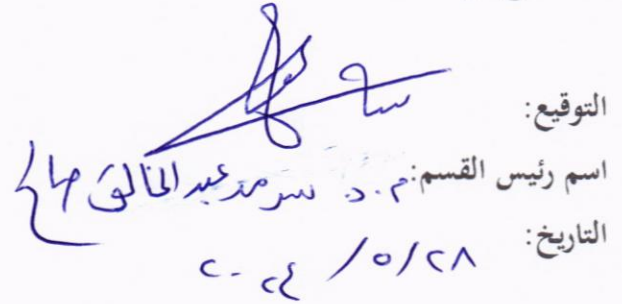 التوقيع:
اسم رئيس القسم: م. د سرمد عبد الخالق صالح
التاريخ: ٢٨/ ٥/ ٢٠٢٤